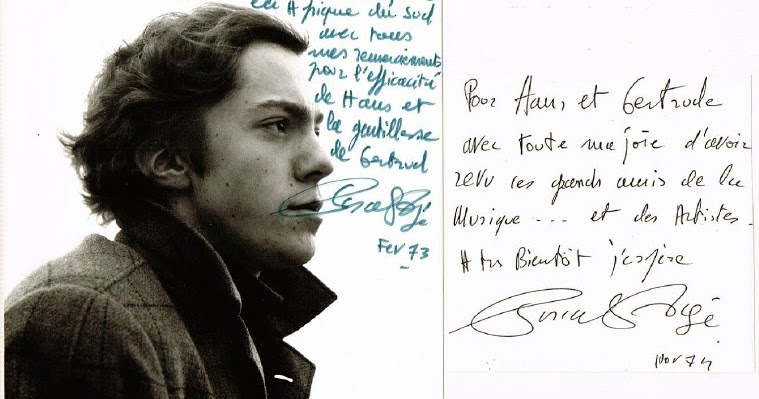 en Afrique du Sud
avec tous
mes remerciements
pour l'efficacité
de Hans et
la gentillesse
de Gertrud
Pascal Rogé
Fev 73
Pour Hans et Gertrude
avec toute ma joie d'avoir
revu ces grands amis de la
Musique --- et des Artistes.
A très Bientôt j'espère
Pascal Rogé
Nov 74